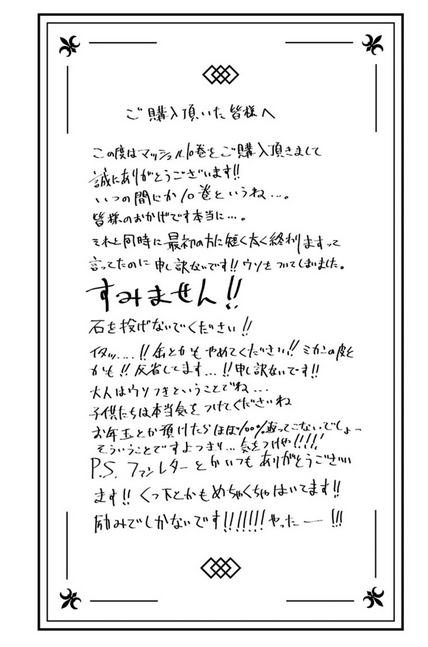 ご購入頂いた皆様へ
この度はマッシュル10巻をご購入頂きまして
誠にありがとうございます!!
いつの間にか10巻というね…。
皆様のおかげです本当に…。
それと同時に最初の方に短く太く終わりますって
言ってたのに申し訳ないです!!ウソをついてしまいました。
すみません!!
石を投げないでください!!
イタッ....!!缶とかもやめてください!!ミカンの皮と
かも!!反省してます...!!申し訳ないです!!
大人はウソつきということでね...
子供たちは本当気をつけてくださいね
お年玉とか預けたらほぼ100%返ってこないでしょ
そういうことですよつまり...気をつけや!!!!
P.S. ファンレターとかいつもありがとうござい
ます!!くつ下とかもめちゃくちゃはいてます!!
励みでしかないです!!!!!!!やったー!!!